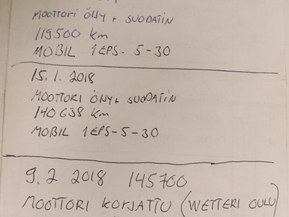 MOOTTORI ÖLJY + SUODATIN
119500 km
MOBIL 1 EPS-5-30
15.1.2018
MOOTTORI ÖLJY + SUODATIN
140638 km
MOBIL 1 EPS-5-30
9.2 2018 145700
MOOTTORI KORJATTU (WETTERI OULU)